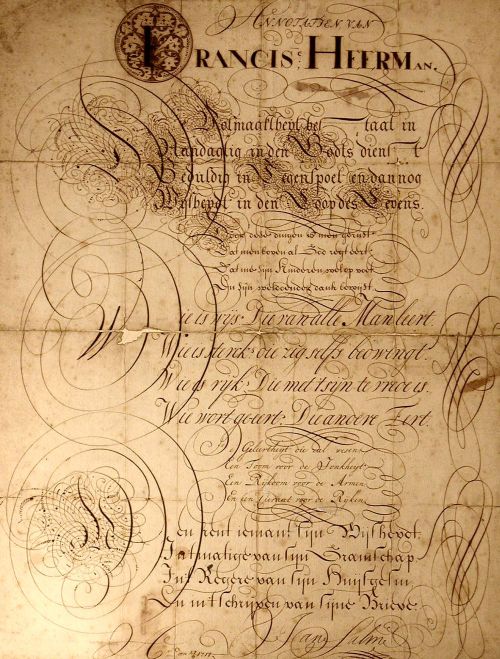 ANNOTATIEN VAN
FRANCISC HEERMAN.
Volmaaktheyt bestaat in
Standagtig in den Godts dienst
Geduldig in Tegenspoet en dan nog
Wijsheyt in den Loop des Levens.
Door dese dingen
Dat men boven al God
Dat me sijn Kinderen wel op voet
En sijn dank bewijst
Wie is wijs: Die van alle Man leert.
Wie is sterk: die zig selfs bedwingt.
Wie is ryk: Die met tsyn te vrede is.
Wie wort geeert: Die andere Eert.
De Geleertheyt die zal wesen
Een Toom voor de Jonkheyt
Een Rijkdom voor de Armen
En een Cieraat voor de Ryken
Men kent iemant sijn Wijsheyt
In't matige van sijn Gramschap
In't Regere van sijn Huijsgesin
En uit schrijven van sijne Brieve